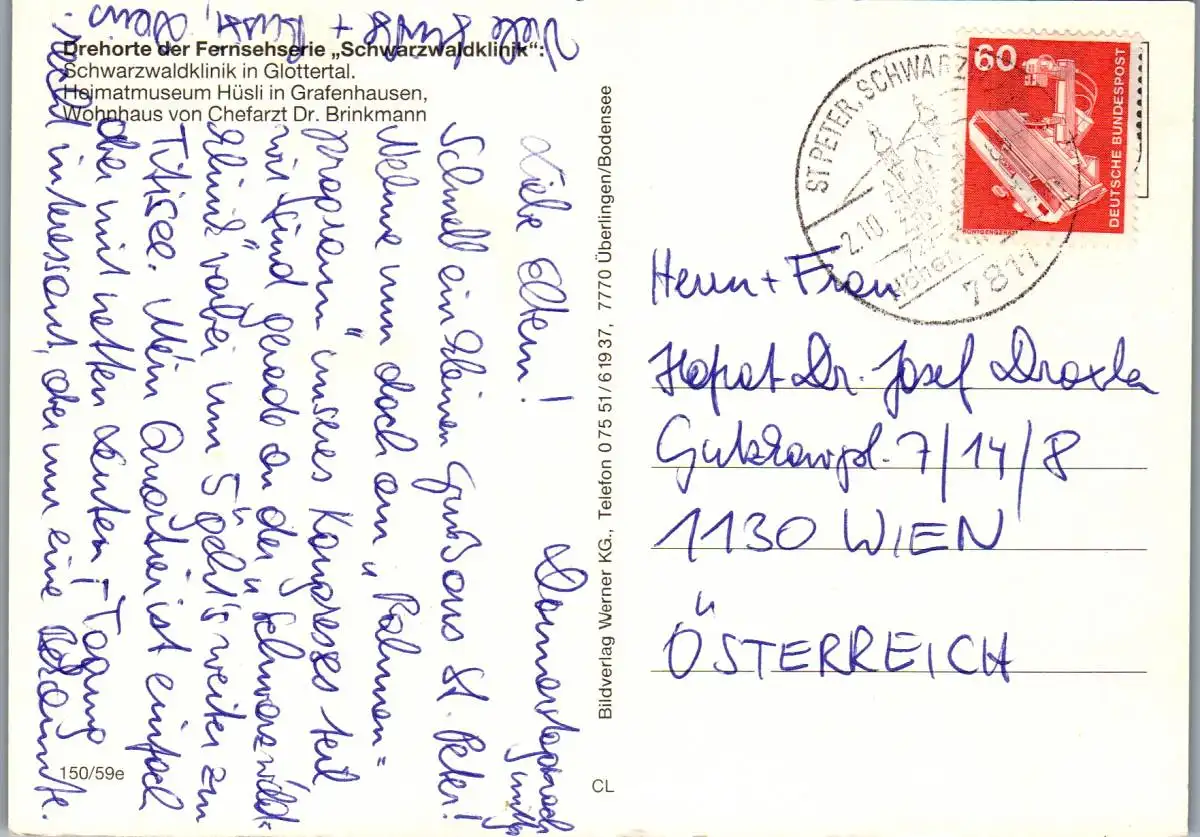 Drehorte der Fernsehserie „Schwarzwaldklinik":
Schwarzwaldklinik in Glottertal.
Heimatmuseum Hüsli in Grafenhausen,
Wohnhaus von Chefarzt Dr. Brinkmann
Donnerstagnach
mittg
Liebe Eltern!
Schnell ein kleinen Gruß aus St. Peter!
Nehme nun doch am „Rahmen=
programm" unseres Kongresses teil
wir sind gerade an der „Schwarzwald=
klinik" vorbei, um 5 geht's weiter zum
Titisee. Mein Quartier ist einfach
aber mit netten Leuten! Tagung
nicht interessant, aber nur eine
Viele Grüße + Bussi,
150/59e
CL
Bildverlag Werner KG., Telefon 0 75 51 / 6 19 37, 7770 Überlingen/Bodensee
60
DEUTSCHE BUNDESPOST
RÖNTGENGERÄT
ST PETER, SCHWARZ
2.10.
7811
Herrn + Frau
Hofrat Dr. Josef Droxla
Gutzkowpl. 7/14/8
1130 WIEN
ÖSTERREICH